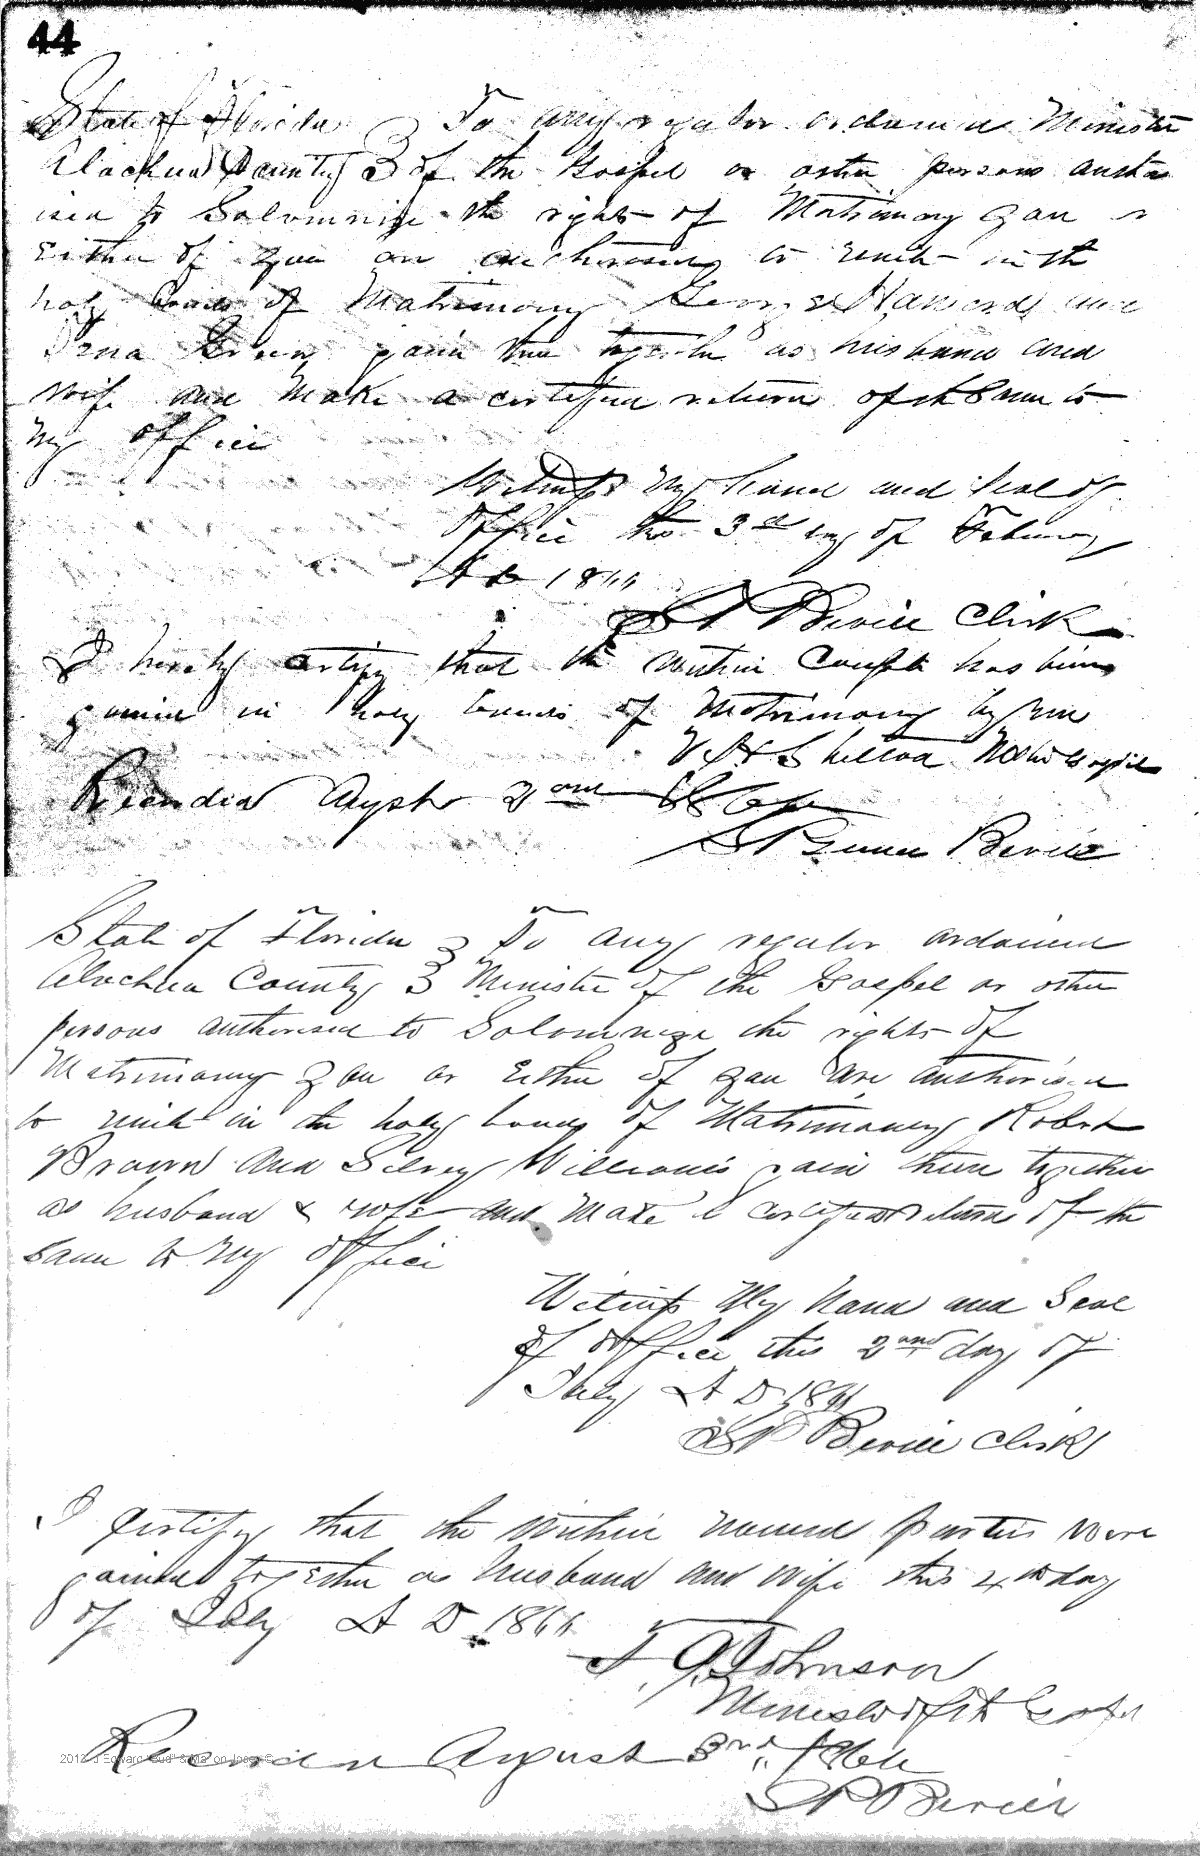 44
State of Florida } To any regular ordained Minister
Alachua County } of the Gospel or other persons autho
ised to Solomnize the rights of Matrimony you or
Either of you are authorised to unite in the
holy bonds of Matrimony George Haward and
Green join them together as husband and
wife and Make a certified return of the Same to
My office
Witness My hand and Seal of
Office this 3rd day of Febuary
A D 1866
S P Bevill Clerk
I hereby certify that the within Couple has bing
joined in holy bonds of Matrimony by Me
Shelton
Recorded August 2nd 1866
S P Bevill
State of Florida } To any regular ordained
Alachua County } Minister of the Gospel or other
persons authorised to Solomnize the rights of
Matrimony you or Either of you are authorised
to unite in the holy bonds of Matrimony Robert
Brown and Silvey Williams join them together
as husband & wife and Make a certified return of the
Same to My office
Witness My hand and Seal
of office this 2nd day of
July A D 1866
S P Bevill Clerk
I certify that the within named parties were
joined together as husband and wife this 4th day
of July A D 1866
T. J. Johnson
Minister of the Gospel
Recorded August 3rd 1866
S P Bevill